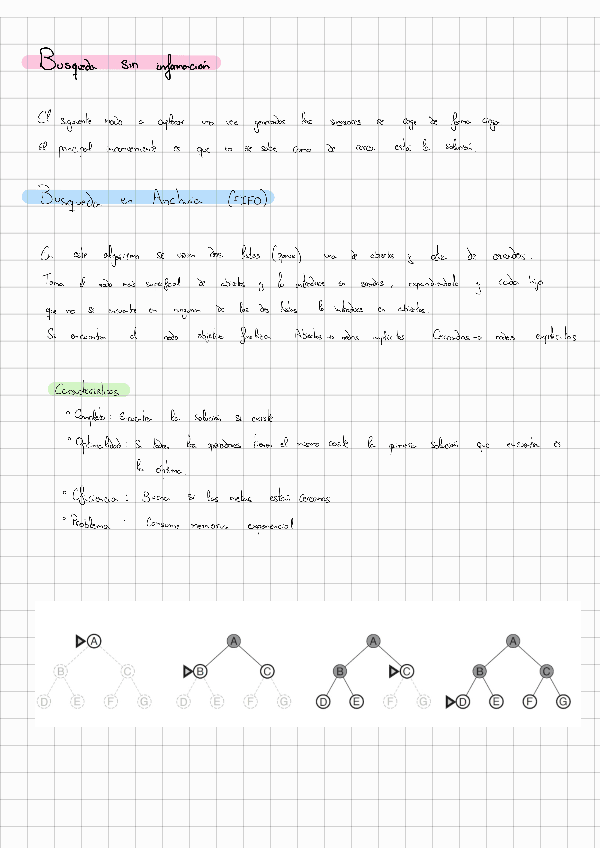 Busqueda sin información
El siguiente nodo a explorar una vez generados los sucesores se coge de forma ciega
El principal inconveniente es que no se sabe como de cerca está la solución
Busqueda en Anchura (FIFO)
En este algoritmo se usan dos listas una de abiertos y otra de cerrados.
Toma el nodo mas superficial de abiertos y lo introduce en cerrados, expandiendolo y cada hijo
que no se encuentre en ninguna de las dos listas lo introduce en abiertos.
Si encuentra el nodo objetivo finaliza Abiertos → nodos implicitos Cerrados → nodos explicitos
Caracteristicas
° Completo: Encuentra la solucion si existe
° Optimalidad: Si todos los operadores tienen el mismo coste la primera solucion que encuentra es
la óptima.
° Eficiencia: Buena si las metas están cercanas
° Problema: Consume memoria exponencial
A A A A
B C B C B C B C
D E F G D E F G D E F G D E F G